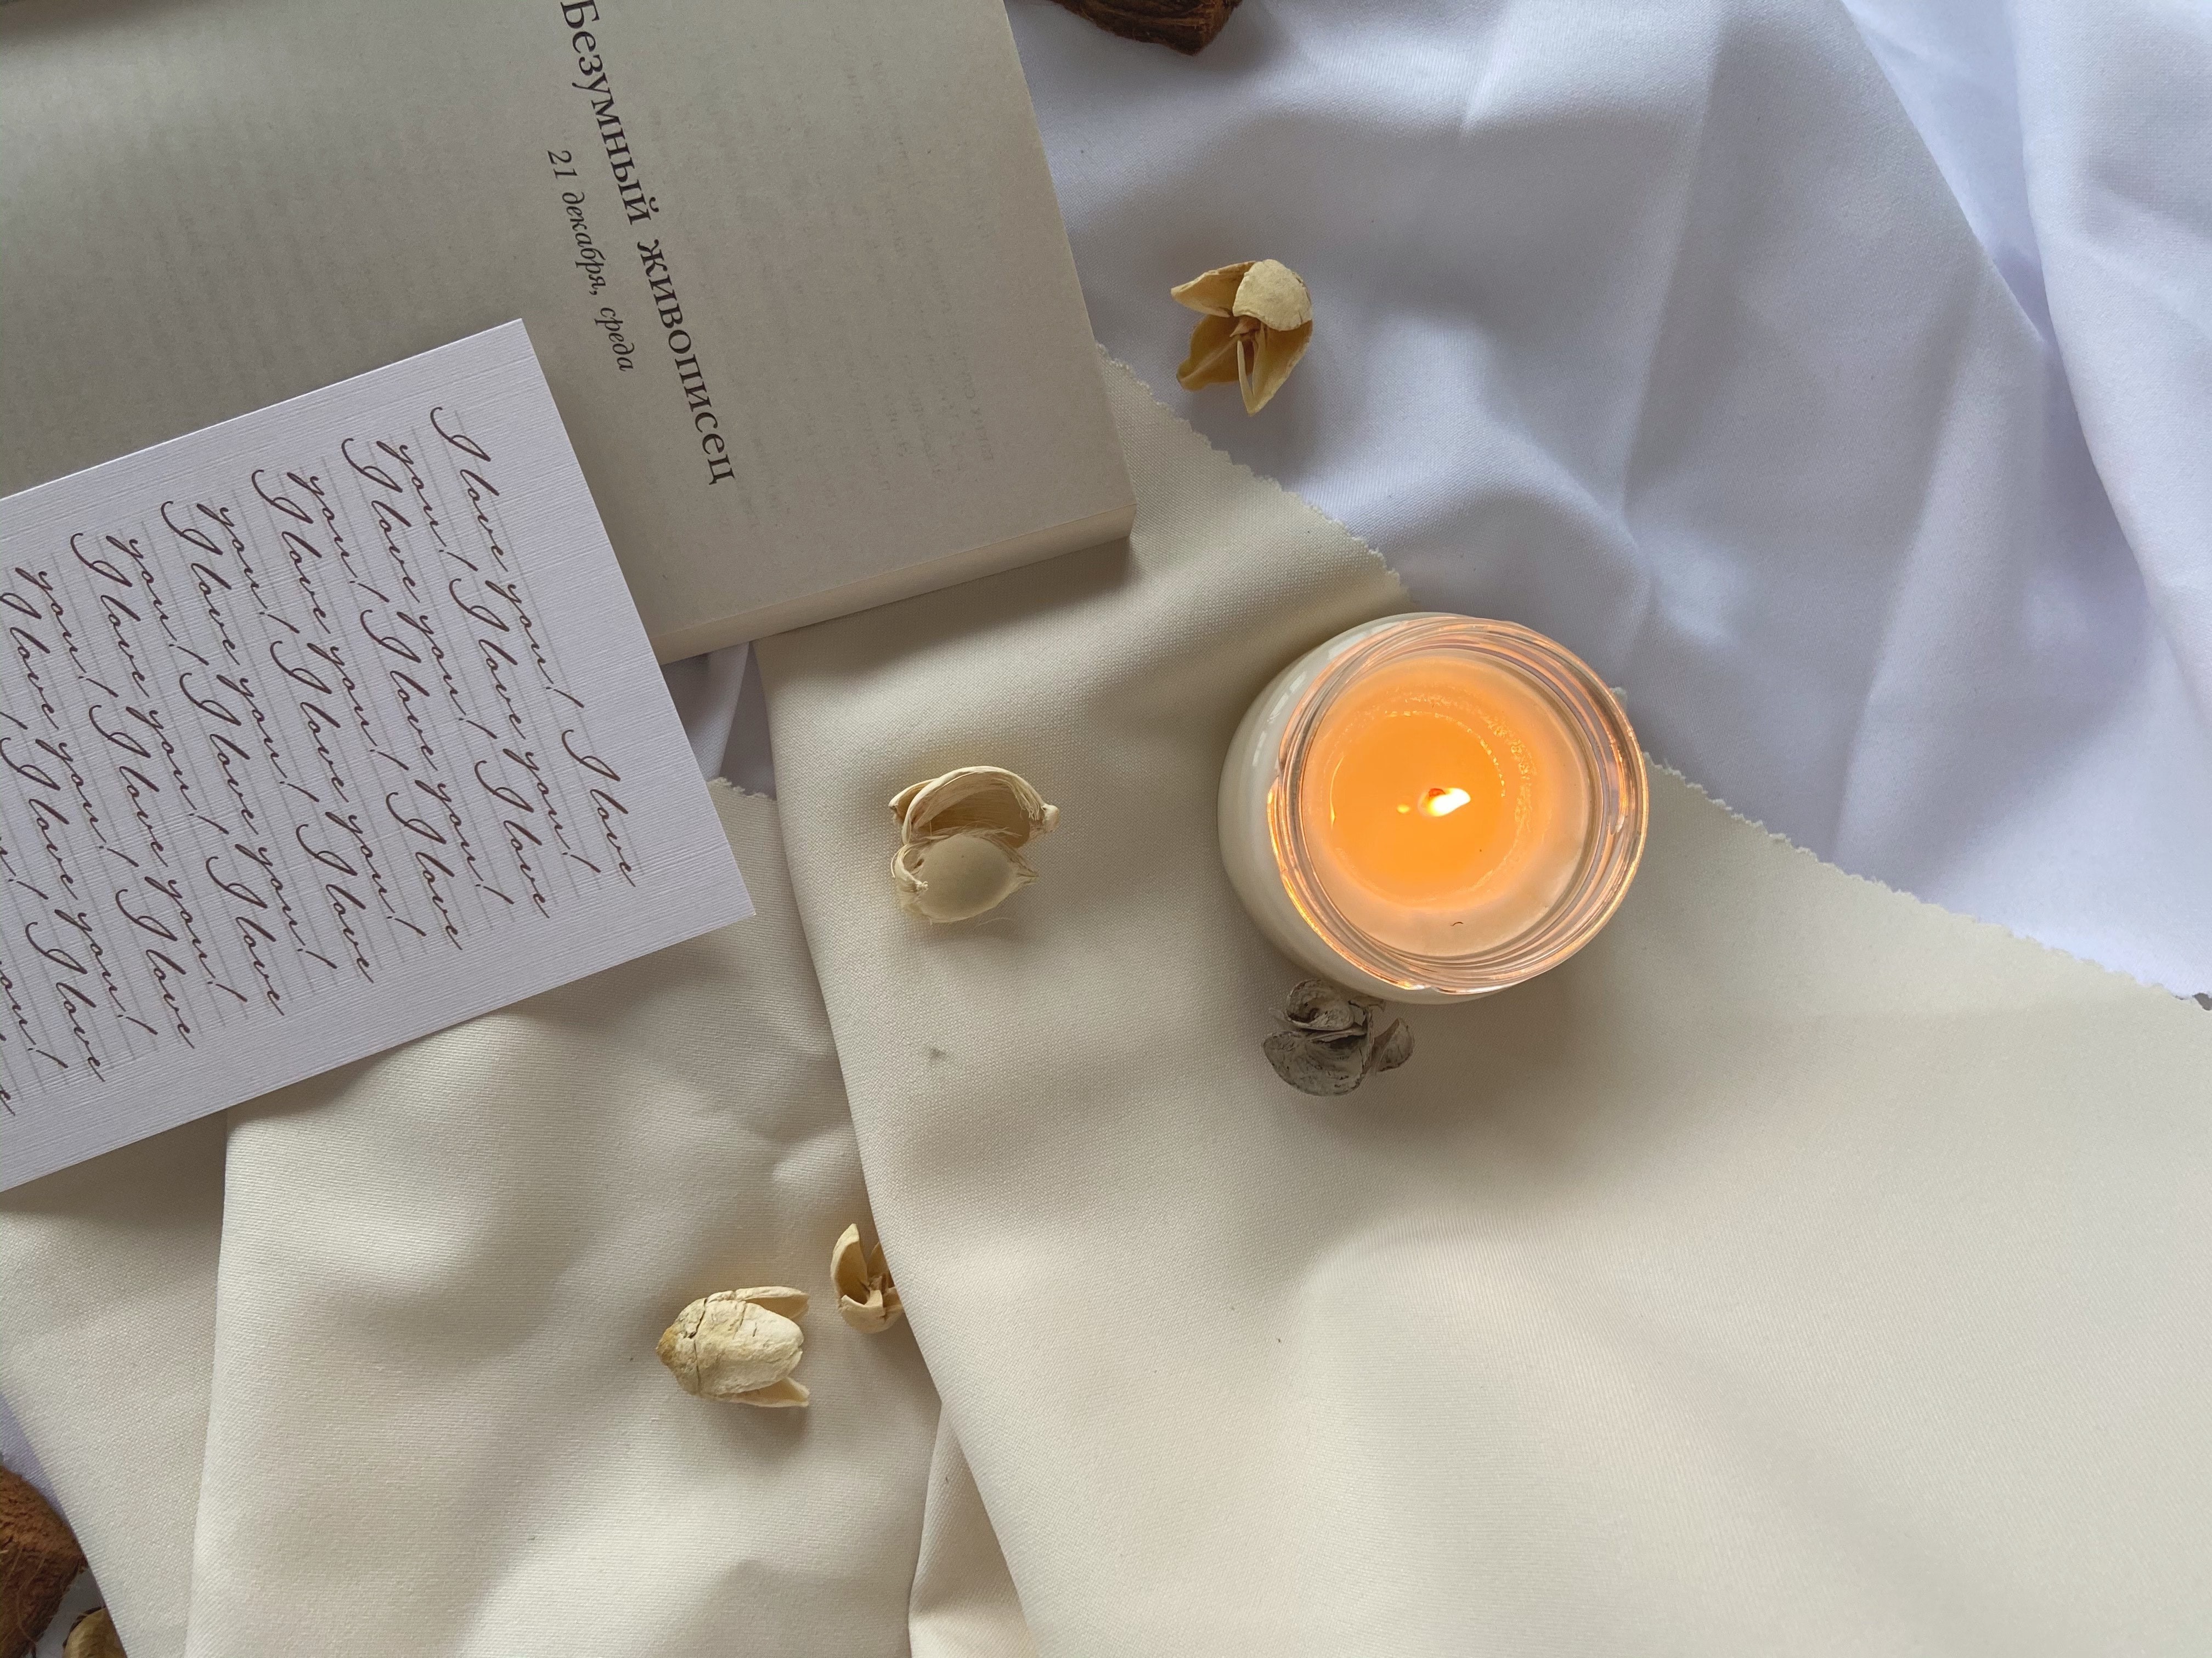 Безумный живописец
21 декабря, среда
I love you! I love
you! I love you!
I love you! I love
you! I love you!
I love you! I love
you! I love you!
I love you! I love
you! I love you!
I love you! I love
you! I love you!
I love you! I love
I love you!
I love
you!